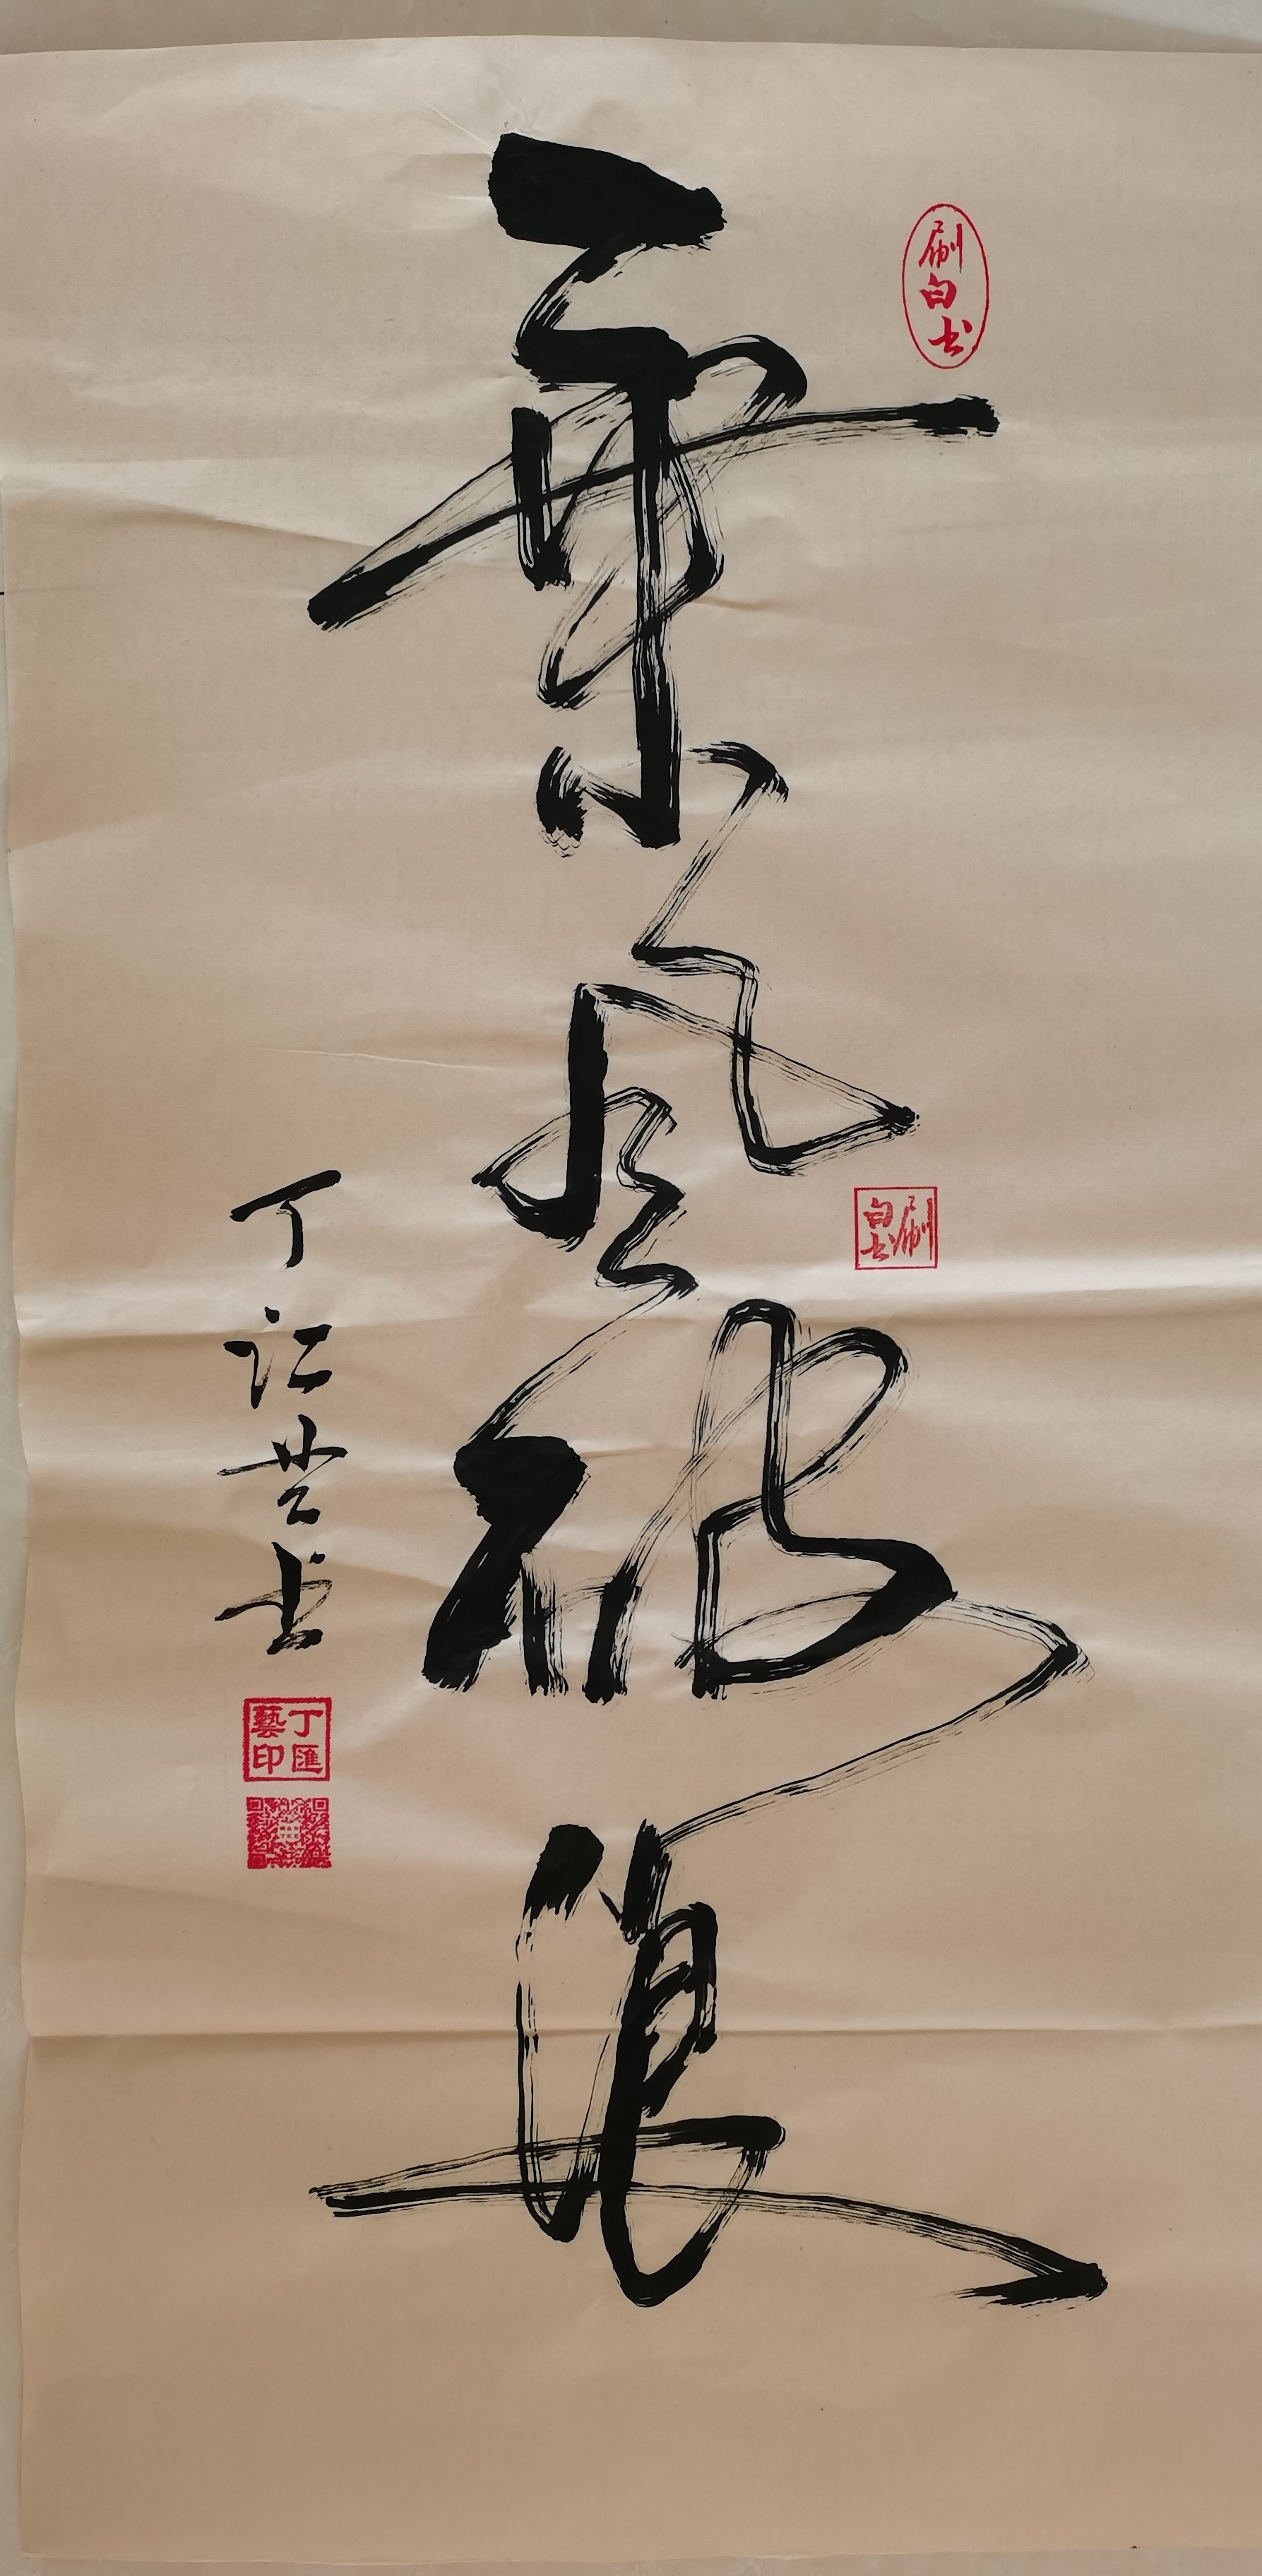 刷白书
乘风破浪
刷白书
丁汇艺书
丁匯藝印